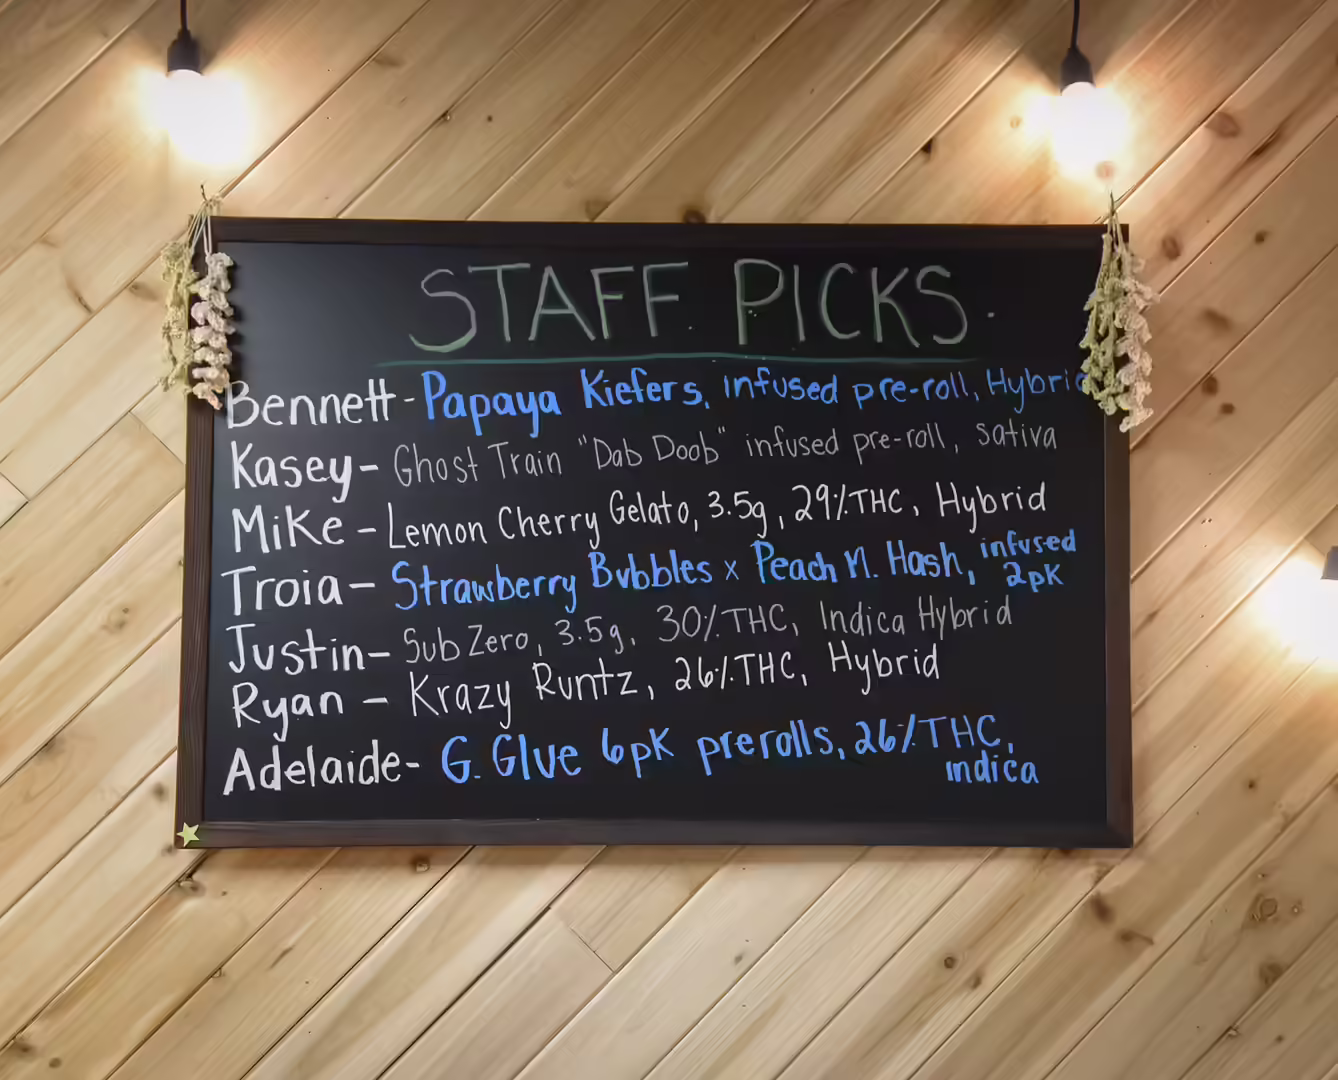 STAFF PICKS.
Bennett - Papaya Kiefers, infused pre-roll, Hybrid
Kasey - Ghost Train "Dab Doob" infused pre-roll, sativa
Mike - Lemon Cherry Gelato, 3.5g, 29% THC, Hybrid
Troia - Strawberry Bubbles x Peach M. Hash, infused 2pk
Justin - Sub Zero, 3.5g, 30% THC, Indica Hybrid
Ryan - Krazy Runtz, 26% THC, Hybrid
Adelaide - G. Glue 6pk prerolls, 26% THC,
indica